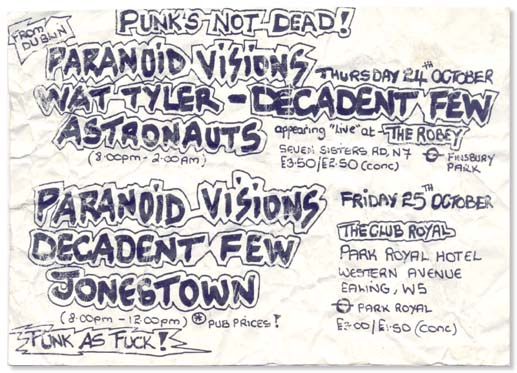 PUNK'S NOT DEAD!
FROM DUBLIN
PARANOID VISIONS THURSDAY 24TH OCTOBER
WAT TYLER - DECADENT FEW
ASTRONAUTS appearing "live" at - THE ROBEY
(8:00pm - 2:00AM) SEVEN SISTERS RD, N7 FINSBURY PARK
£3·50/£2·50 (conc)
PARANOID VISIONS
DECADENT FEW
JONESTOWN
(8:00pm - 12:00pm) * PUB PRICES!
PUNK AS FUCK!
FRIDAY 25TH OCTOBER
THE CLUB ROYAL
PARK ROYAL HOTEL
WESTERN AVENUE
EALING, W5
PARK ROYAL
£2·00/£1·50 (conc)